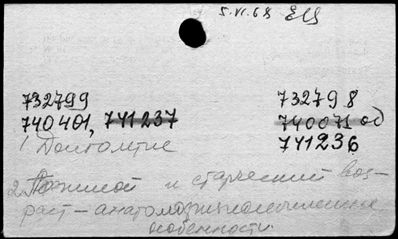 5.VI.68 ЕЦ
732799
732798
740401, 741237
740071 од
741236
1. Долголетие
2. Пожилой и старческий воз-
раст – анатомо-физиологические
особенности.